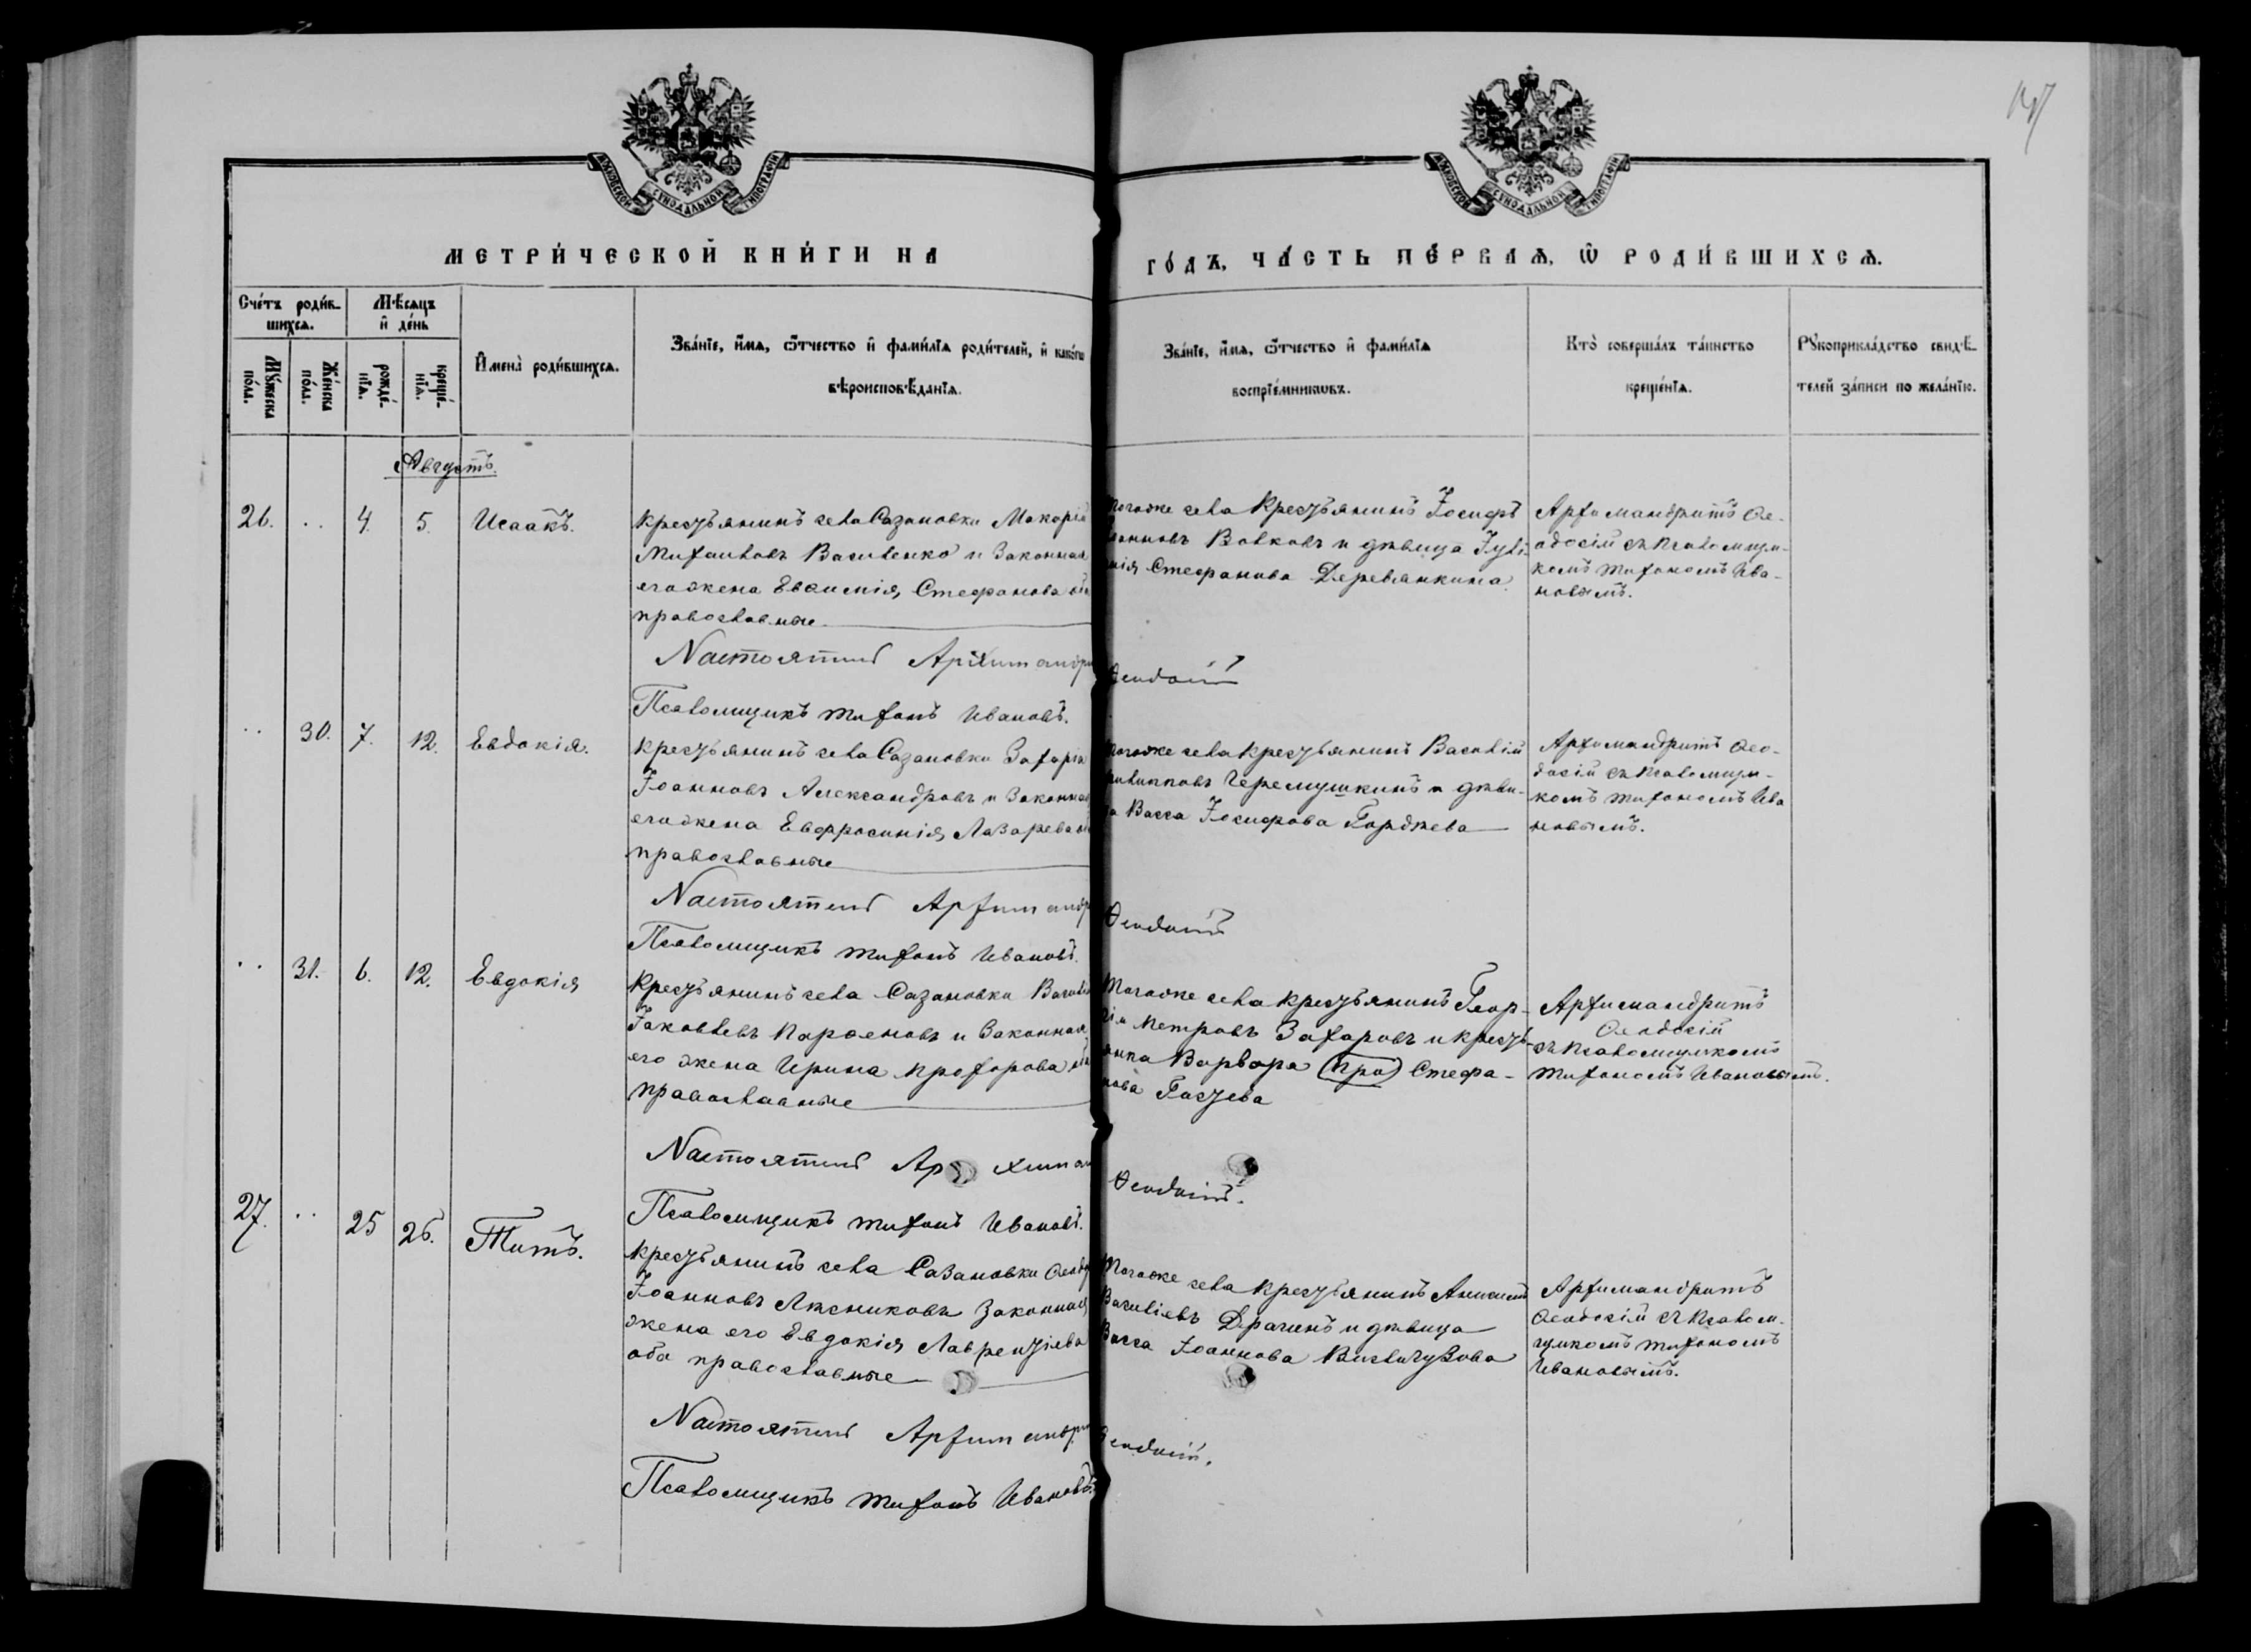 147
МОСКОВСКОЙ СѴНОДАЛЬНОЙ ТИПОГРАФІИ
МОСКОВСКОЙ СѴНОДАЛЬНОЙ ТИПОГРАФІИ
МЕТРИ́ЧЕСКОЙ КНИ́ГИ НА
ГО́ДЪ, ЧА́СТЬ ПЕ́РВАѦ, Ѡ РОДИ́ВШИХСѦ.
Сче́тъ роди́в-
шихсѧ.
Мѣ́сѧцъ
и де́нь
Мꙋ́жеска
по́ла.
Же́нска
по́ла.
рожде́-
нїѧ.
креще́-
нїѧ.
Имена̀ роди́вшихсѧ.
Зва́нїе, и́мѧ, ѻ́тчество и фами́лїѧ роди́телей, и како́гѡ
вѣроисповѣ́данїѧ.
Зва́нїе, и́мѧ, ѻ́тчество и фами́лїѧ
воспрїе́мникѡвъ.
Кто̀ соверша́лъ та́инство
креще́нїѧ.
Рꙋкоприкла́дство свидѣ́-
телей за́писи по жела́нїю.
Августъ.
26. .. 4. 5. Исаакъ.
Крестьянинъ села Сазановки Макарій
Михаиловъ Василенко и законная
его жена Евѳимія Стефанова оба
православные
тогоже села крестьянинъ Іосифъ
Іоанновъ Волковъ и дѣвица Іулі-
нія Стефанова Деревянкина.
Архимандритъ Ѳе-
одосій съ псаломщи-
комъ Тихономъ Ива-
новымъ.
Настоятель Архимандри
Ѳеодосій
Псаломщикъ Тихонъ Ивановъ.
.. 30. 7. 12. Евдокія.
Крестьянинъ села Сазановки Захарія
Іоанновъ Александровъ и законная
его жена Евфросинія Лазарева оба
православные
тогоже села крестьянинъ Василій
Филипповъ Черемушкинъ и дѣви-
ца Васса Іосифова Гордѣева
Архимандритъ Ѳео-
досій съ псаломщи-
комъ Тихономъ Ива
новымъ.
Настоятель Архимандр
Ѳеодосій
Псаломщикъ Тихонъ Ивановъ.
.. 31. 6. 12. Евдокія
Крестьянинъ села Сазановки Василій
Іаковлевъ Парѳеновъ и законная
его жена Ирина Прохорова оба
православные
тогоже села крестьянинъ Геор-
гій Петровъ Захаровъ и кресть-
янка Варвара (Про) Стефа-
нова Гостева
Архимандритъ
Ѳеодосій
съ псаломщикомъ
Тихономъ Ивановымъ.
Настоятель Архиман
Ѳеодосій.
Псаломщикъ Тихонъ Ивановъ.
27. .. 25 26. Титъ.
Крестьянинъ села Сазановки Ѳеодо
Іоанновъ Лѣсниковъ законная
жена его Евдокія Лаврентіева
оба православные
тогоже села крестьянинъ Анисимъ
Василіевъ Драгинъ и дѣвица
Васса Іоаннова
Архимандритъ
Ѳеодосій съ псалом-
щикомъ Тихономъ
Ивановымъ.
Настоятель Архимандри
Ѳеодосій.
Псаломщикъ Тихонъ Ивановъ.